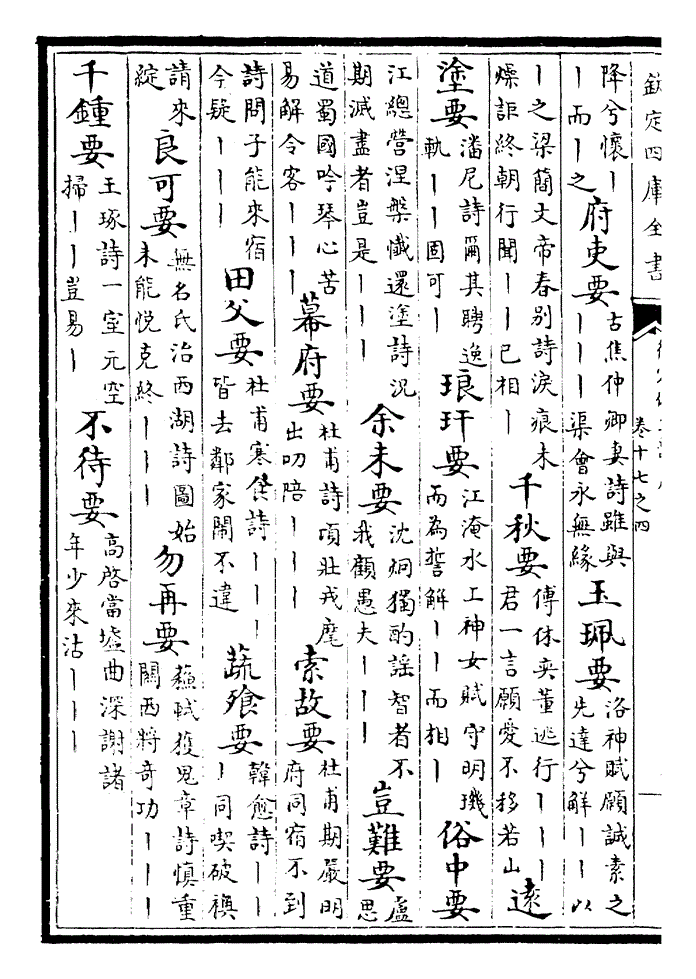 欽定四庫全書
卷十七之四
降兮懷｜
｜而｜之
府吏要
古焦仲卿妻詩雖與
｜｜｜渠會永無緣
玉珮要
洛神賦願誠素之
先達兮解｜｜以
｜之梁簡文帝春別詩淚痕未
燥詎終朝行聞｜｜已相｜
千秋要
傅休奕董逃行｜｜｜
君一言願愛不移若山
遠
塗要
潘尼詩爾其騁逸
軌｜｜固可｜
琅玕要
江淹水上神女賦守明璣
而為誓解｜｜而相｜
俗中要
江總營涅槃懺還塗詩況
期滅盡者豈是｜｜｜
余未要
沈炯獨酌謡智者不
我顧愚夫｜｜｜
豈難要
盧
思
道蜀國吟琴心苦
易解令客｜｜｜
幕府要
杜甫詩項壯戎麾
出叨陪｜｜｜
索故要
杜甫期嚴明
府同宿不到
詩問子能來宿
今疑｜｜｜
田父要
杜甫寒食詩｜｜｜
皆去鄰家鬧不違
蔬飧要
韓愈詩｜｜
｜同喫破襖
請來
綻
良可要
無名氏治西湖詩圖始
未能悅克終｜｜｜
勿再要
蘇軾獲鬼章詩慎重
關西將奇功｜｜｜
千鍾要
王琢詩一室元空
掃｜｜豈易｜
不待要
高啓當壚曲深謝諸
年少來沽｜｜｜